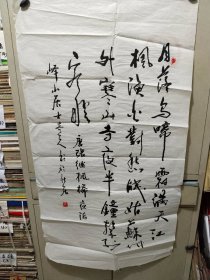 月落烏啼霜滿天江
楓漁火對愁眠姑蘇城
外寒山寺夜半鐘聲到
客船
唐張繼楓橋夜泊詩